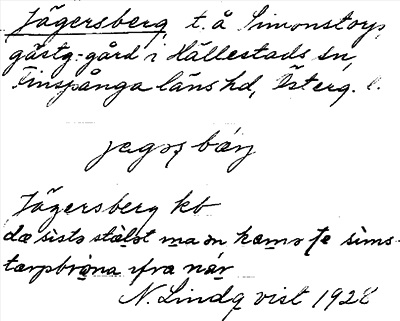 Jägersberg, t. å Simonstorps
gästg.-gård i Hällestads sn,
Finspånga läns hd, Österg. l.
jegəʂ bærj
Jägersberg kb
dæ sistə stälət ma ən kəmə
tərpbrona ifra nər
N. Lindqvist 1928